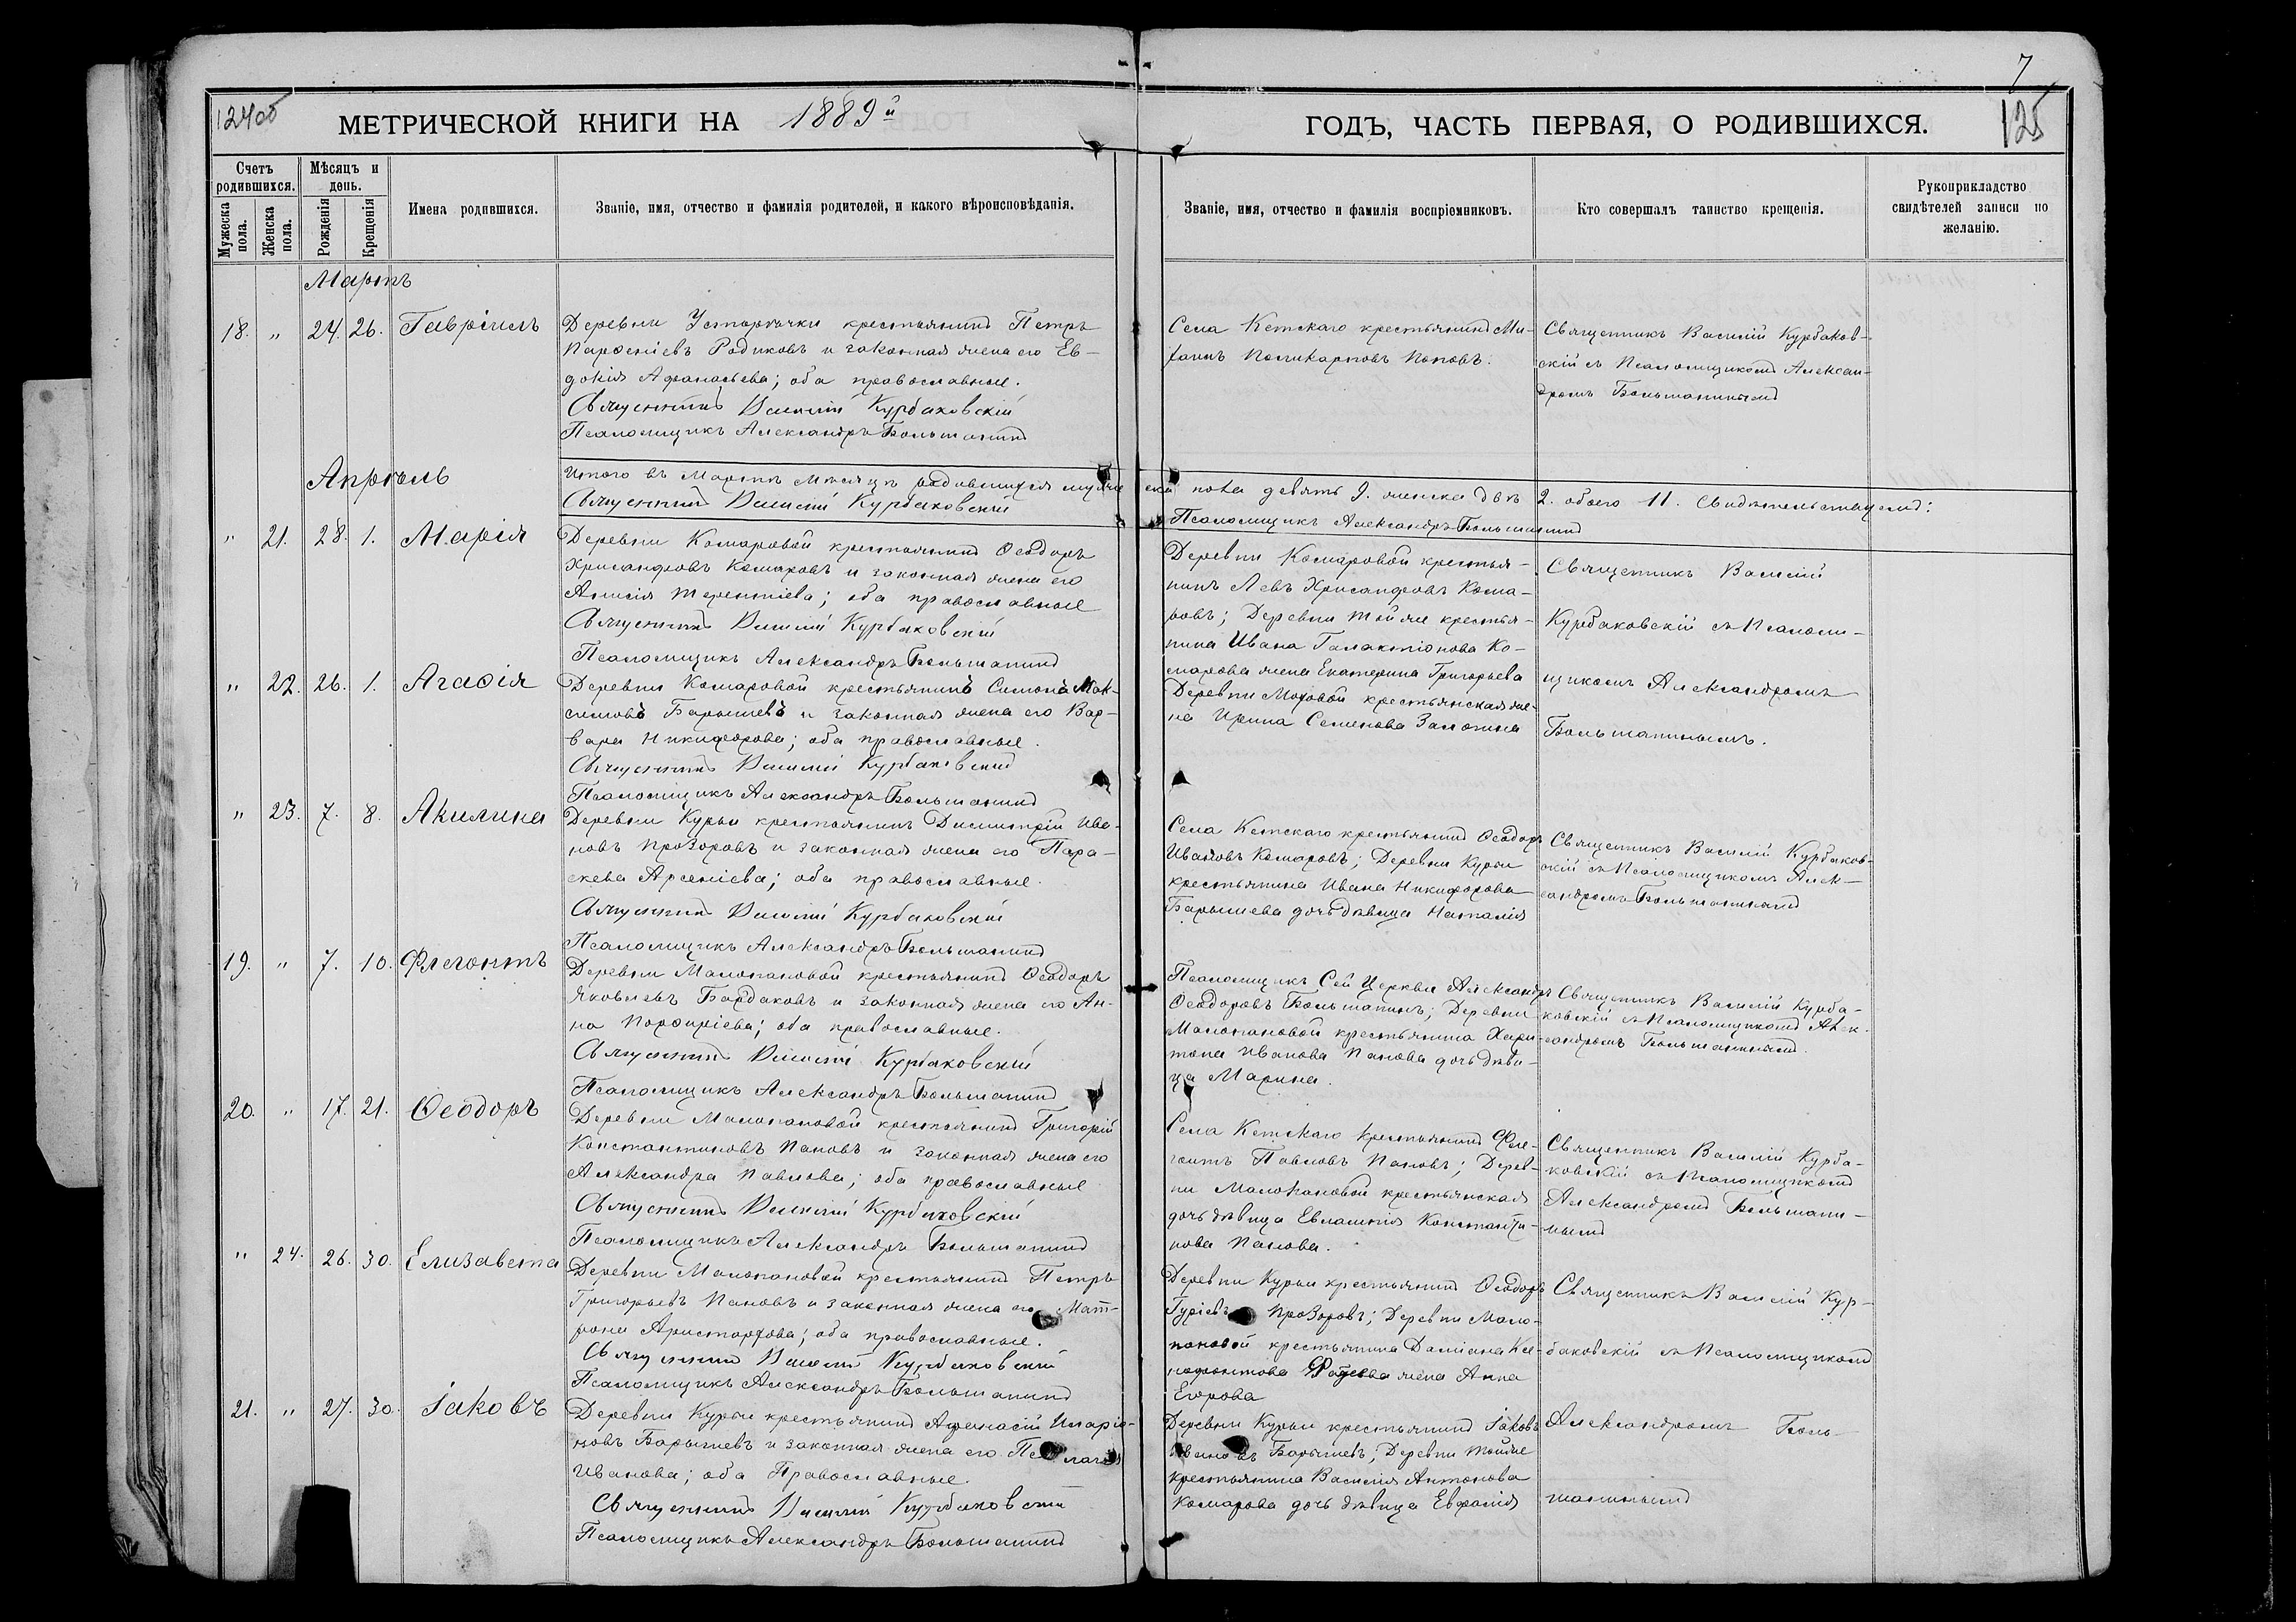 7
12400
125
МЕТРИЧЕСКОЙ КНИГИ НА 1889й
ГОДЪ, ЧАСТЬ ПЕРВАЯ, О РОДИВШИХСЯ.
Счетъ родившихся.
Мѣсяцъ и день.
Мужеска пола.
Женска пола.
Рожденія
Крещенія
Имена родившихся.
Званіе, имя, отчество и фамилія родителей, и какого вѣроисповѣданія.
Званіе, имя, отчество и фамилія воспріемниковъ.
Кто совершалъ таинство крещенія.
Рукоприкладство свидѣтелей записи по желанію.
Мартъ
18. " 24. 26. Гавріилъ
Деревни Устьрѣчки крестьянинъ Петръ
Парѳеніевъ Родиковъ и законная жена его Ев-
докія Аѳанасьева; оба православные.
Священникъ Василій Курбаковскій
Псаломщикъ Александръ Большанинъ
Села Кетскаго крестьянинъ Ми-
хаилъ Поликарповъ Поповъ.
Священникъ Василій Курбаков-
скій съ Псаломщикомъ Алексан-
дромъ Большанинымъ
Апрѣль
Итого въ Мартѣ мѣсяцѣ родившихся мужеска пола девять 9. женска двѣ 2. обоего 11. Свидѣтельствуемъ:
Священникъ Василій Курбаковскій
Псаломщикъ Александръ Большанинъ
" 21. 28. 1. Марія
Деревни Комаровой крестьянинъ Ѳеодоръ
Хрисанѳовъ Комаровъ и законная жена его
Анисія Терентіева; оба православные
Священникъ Василій Курбаковскій
Псаломщикъ Александръ Большанинъ
Деревни Комаровой крестья-
нинъ Левъ Хрисанѳовъ Кома-
ровъ; Деревни Тайже крестья-
нина Ивана Галактіонова Ко-
марова жена Екатерина Григорьева
Священникъ Василій
Курбаковскій съ Псалом-
щикомъ Александромъ
Большанинымъ.
" 22. 26. 1. Агаѳія
Деревни Комаровой крестьянинъ Симонъ Мак-
симовъ Барышевъ и законная жена его Вар-
вара Никифорова; оба православные.
Священникъ Василій Курбаковскій
Псаломщикъ Александръ Большанинъ
Деревни Моховой крестьянская же-
на Ирина Семенова
" 23. 7. 8. Акилина
Деревни Курьи крестьянинъ Димитрій Ива-
новъ Прозоровъ и законная жена его Пара-
скева Арсеніева; оба православные.
Священникъ Василій Курбаковскій
Псаломщикъ Александръ Большанинъ
Села Кетскаго крестьянинъ Ѳеодоръ
Ивановъ Комаровъ; Деревни Курьи
крестьянина Ивана Никифорова
Барышева дочь дѣвица Наталія
Священникъ Василій Курбаков-
скій съ Псаломщикомъ Алек-
сандромъ Большанинымъ
19. " 7. 10. Флегонтъ
Деревни Малопановой крестьянинъ Ѳеодоръ
Яковлевъ Бардаковъ и законная жена его Ан-
на Порфиріева; оба православные.
Священникъ Василій Курбаковскій
Псаломщикъ Александръ Большанинъ
Псаломщикъ Сей Церкви Александръ
Ѳеодоровъ Большанинъ; Деревни
Малопановой крестьянина Хари-
тона Иванова Панова дочь дѣви-
ца Марина.
Священникъ Василій Курба-
ковскій съ Псаломщикомъ Алек-
сандромъ Большанинымъ.
20. " 17. 21. Ѳеодоръ
Деревни Малопановой крестьянинъ Григорій
Константиновъ Пановъ и законная жена его
Александра Павлова; оба православные
Священникъ Василій Курбаковскій
Псаломщикъ Александръ Большанинъ
Села Кетскаго крестьянинъ Фле-
гонтъ Павловъ Пановъ; Дерев-
ни Малопановой крестьянская
дочь дѣвица Евлампія Константи-
нова Панова.
Священникъ Василій Курба-
ковскій съ Псаломщикомъ
Александромъ Большани-
нымъ
" 24. 26. 30. Елизавета
Деревни Малопановой крестьянинъ Петръ
Григорьевъ Пановъ и законная жена его Мат-
рона Аристархова; оба православные.
Священникъ Василій Курбаковскій
Псаломщикъ Александръ Большанинъ
Деревни Курьи крестьянинъ Ѳеодоръ
Гуріевъ Прозоровъ; Деревни Мало-
пановой крестьянина Даміана
жена Анна
Егорова
Священникъ Василій Кур-
баковскій съ Псаломщикомъ
Александромъ Боль-
шанинымъ
21. " 27. 30. Іаковъ
Деревни Курьи крестьянинъ Аѳанасій Иларіо-
новъ Барышевъ и законная жена его Пелагія
Иванова; оба Православные.
Священникъ Василій Курбаковскій
Псаломщикъ Александръ Большанинъ
Деревни Курьи крестьянинъ Іаковъ
Ивановъ Барышевъ; Деревни Тойже
крестьянина Василія Антонова
Комарова дочь дѣвица Евфалія